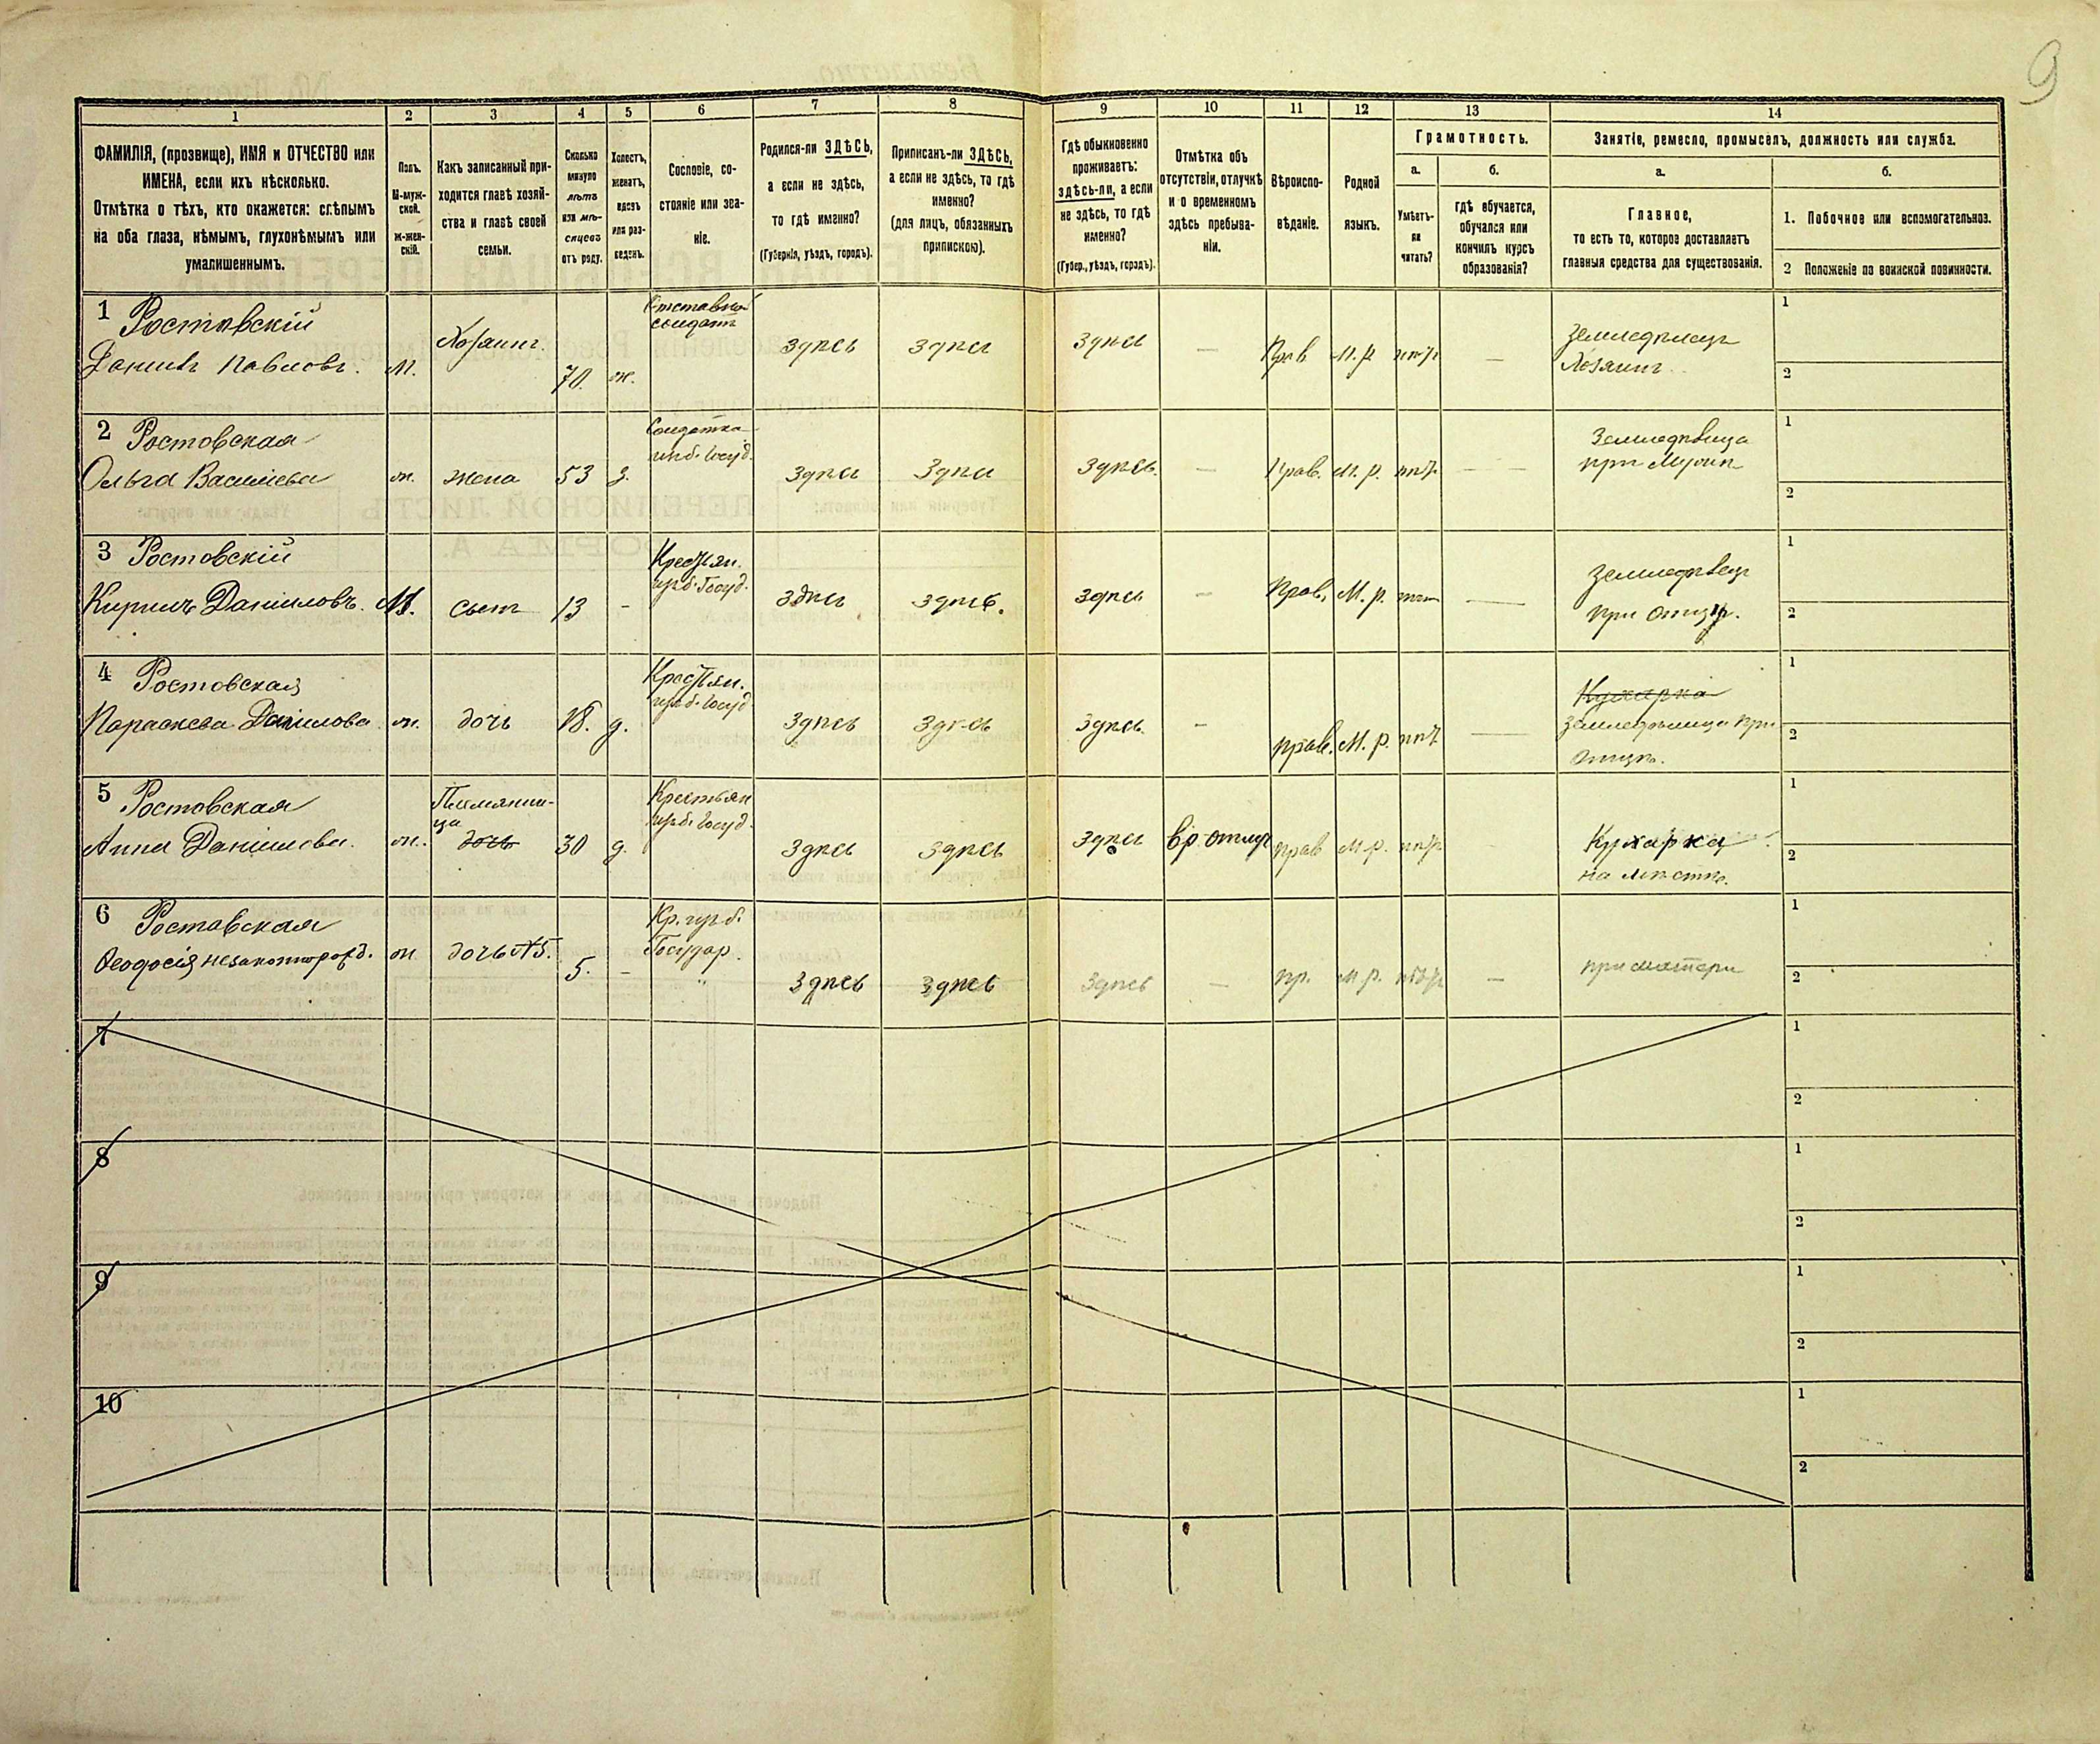 9
1
2
3
4
5
6
7
8
9
10
11
12
13
14
ФАМИЛІЯ, (прозвище), ИМЯ и ОТЧЕСТВО или
ИМЕНА, если ихъ нѣсколько.
Отмѣтка о тѣхъ, кто окажется: слѣпымъ
на оба глаза, нѣмымъ, глухонѣмымъ или
умалишеннымъ.
Полъ.
М-муж-
ской.
Ж-жен-
скій.
Какъ записанный при-
ходится главѣ хозяй-
ства и главѣ своей
семьи.
Сколько
минуло
лѣтъ
или мѣ-
сяцевъ
отъ роду.
Холостъ,
женатъ,
вдовъ
или раз-
веденъ.
Сословіе, со-
стояніе или зва-
ніе.
Родился-ли ЗДѢСЬ,
а если не здѣсь,
то гдѣ именно?
(Губернія, уѣздъ, городъ).
Приписанъ-ли ЗДѢСЬ,
а если не здѣсь, то гдѣ
именно?
(для лицъ, обязанныхъ
припискою).
Гдѣ обыкновенно
проживаетъ:
здѣсь-ли, а если
не здѣсь, то гдѣ
именно?
(Губер., уѣздъ, городъ).
Отмѣтка объ
отсутствіи, отлучкѣ
и о временномъ
здѣсь пребыва-
ніи.
Вѣроиспо-
вѣданіе.
Родной
языкъ.
Грамотность.
а.
Умѣетъ-
ли
читать?
б.
гдѣ обучается,
обучался или
кончилъ курсъ
образованія?
Занятіе, ремесло, промыселъ, должность или служба.
а.
Главное,
то есть то, которое доставляетъ
главныя средства для существованія.
б.
1. Побочное или вспомогательное.
2 Положеніе по воинской повинности.
1 Ростовскій
Данилъ Павловъ. М. Хозяинъ. 70. ж.
Отставной
солдатъ
здѣсь здѣсь здѣсь — Прав М.р нѣтъ —
Земледѣлецъ
Хозяинъ
1
2
2 Ростовская
Ольга Василіева ж. жена 53 з.
Солдатка
здѣсь здѣсь здѣсь. — Прав. М.р. нѣтъ —
Земледѣлица
при Мужѣ
1
2
3 Ростовскій
Кирилъ Даніиловъ. М. сынъ 13 -
Крестьян.
здѣсь здѣсь. здѣсь — Прав. М.р. —
Земледѣлецъ
при Отцѣ.
1
2
4 Ростовская
Параскева Данилова ж. дочь 18. д.
Крестьян.
здѣсь здѣсь здѣсь. — прав. М.р. нѣтъ —
Кухарка
Земледѣлица при
Отцѣ.
1
2
5 Ростовская
Анна Даніилова. ж.
Племянни-
ца
дочь 30 д.
Крестьян
здѣсь здѣсь здѣсь вр. отлуч прав М.р. нѣтъ
Кухарка
на мѣстѣ.
1
2
6 Ростовская
Феодосія незаконнорожд. ж дочь №5. 5. -
Кр.
Государ.
здѣсь здѣсь здѣсь — пр. М.р. нѣтъ —
при матери
1
2
7
1
2
8
1
2
9
1
2
10
1
2